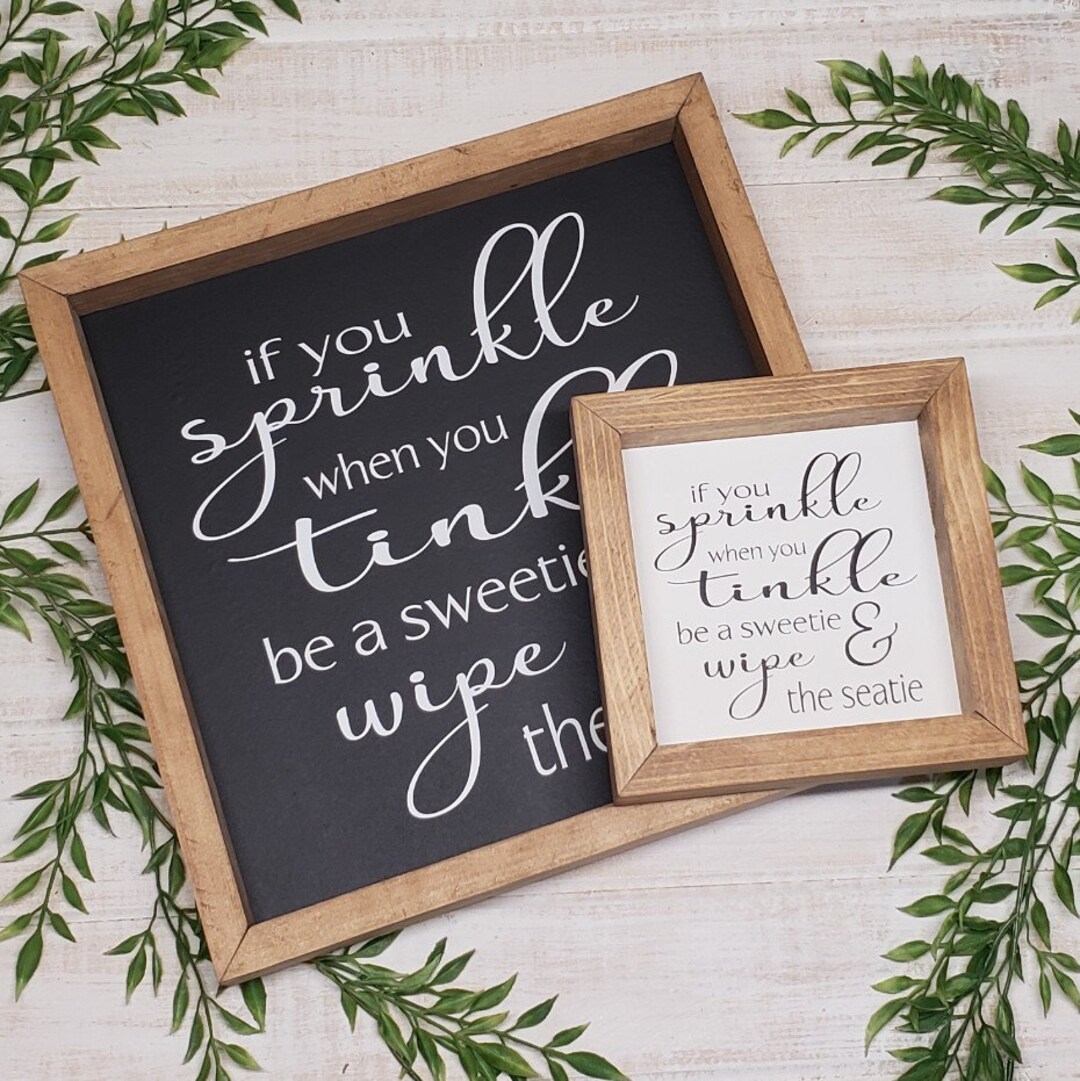 if you
sprinkle
when you
be a sweetie
wipe
if you
sprinkle
when you
tinkle
be a sweetie &
wipe
the seatie